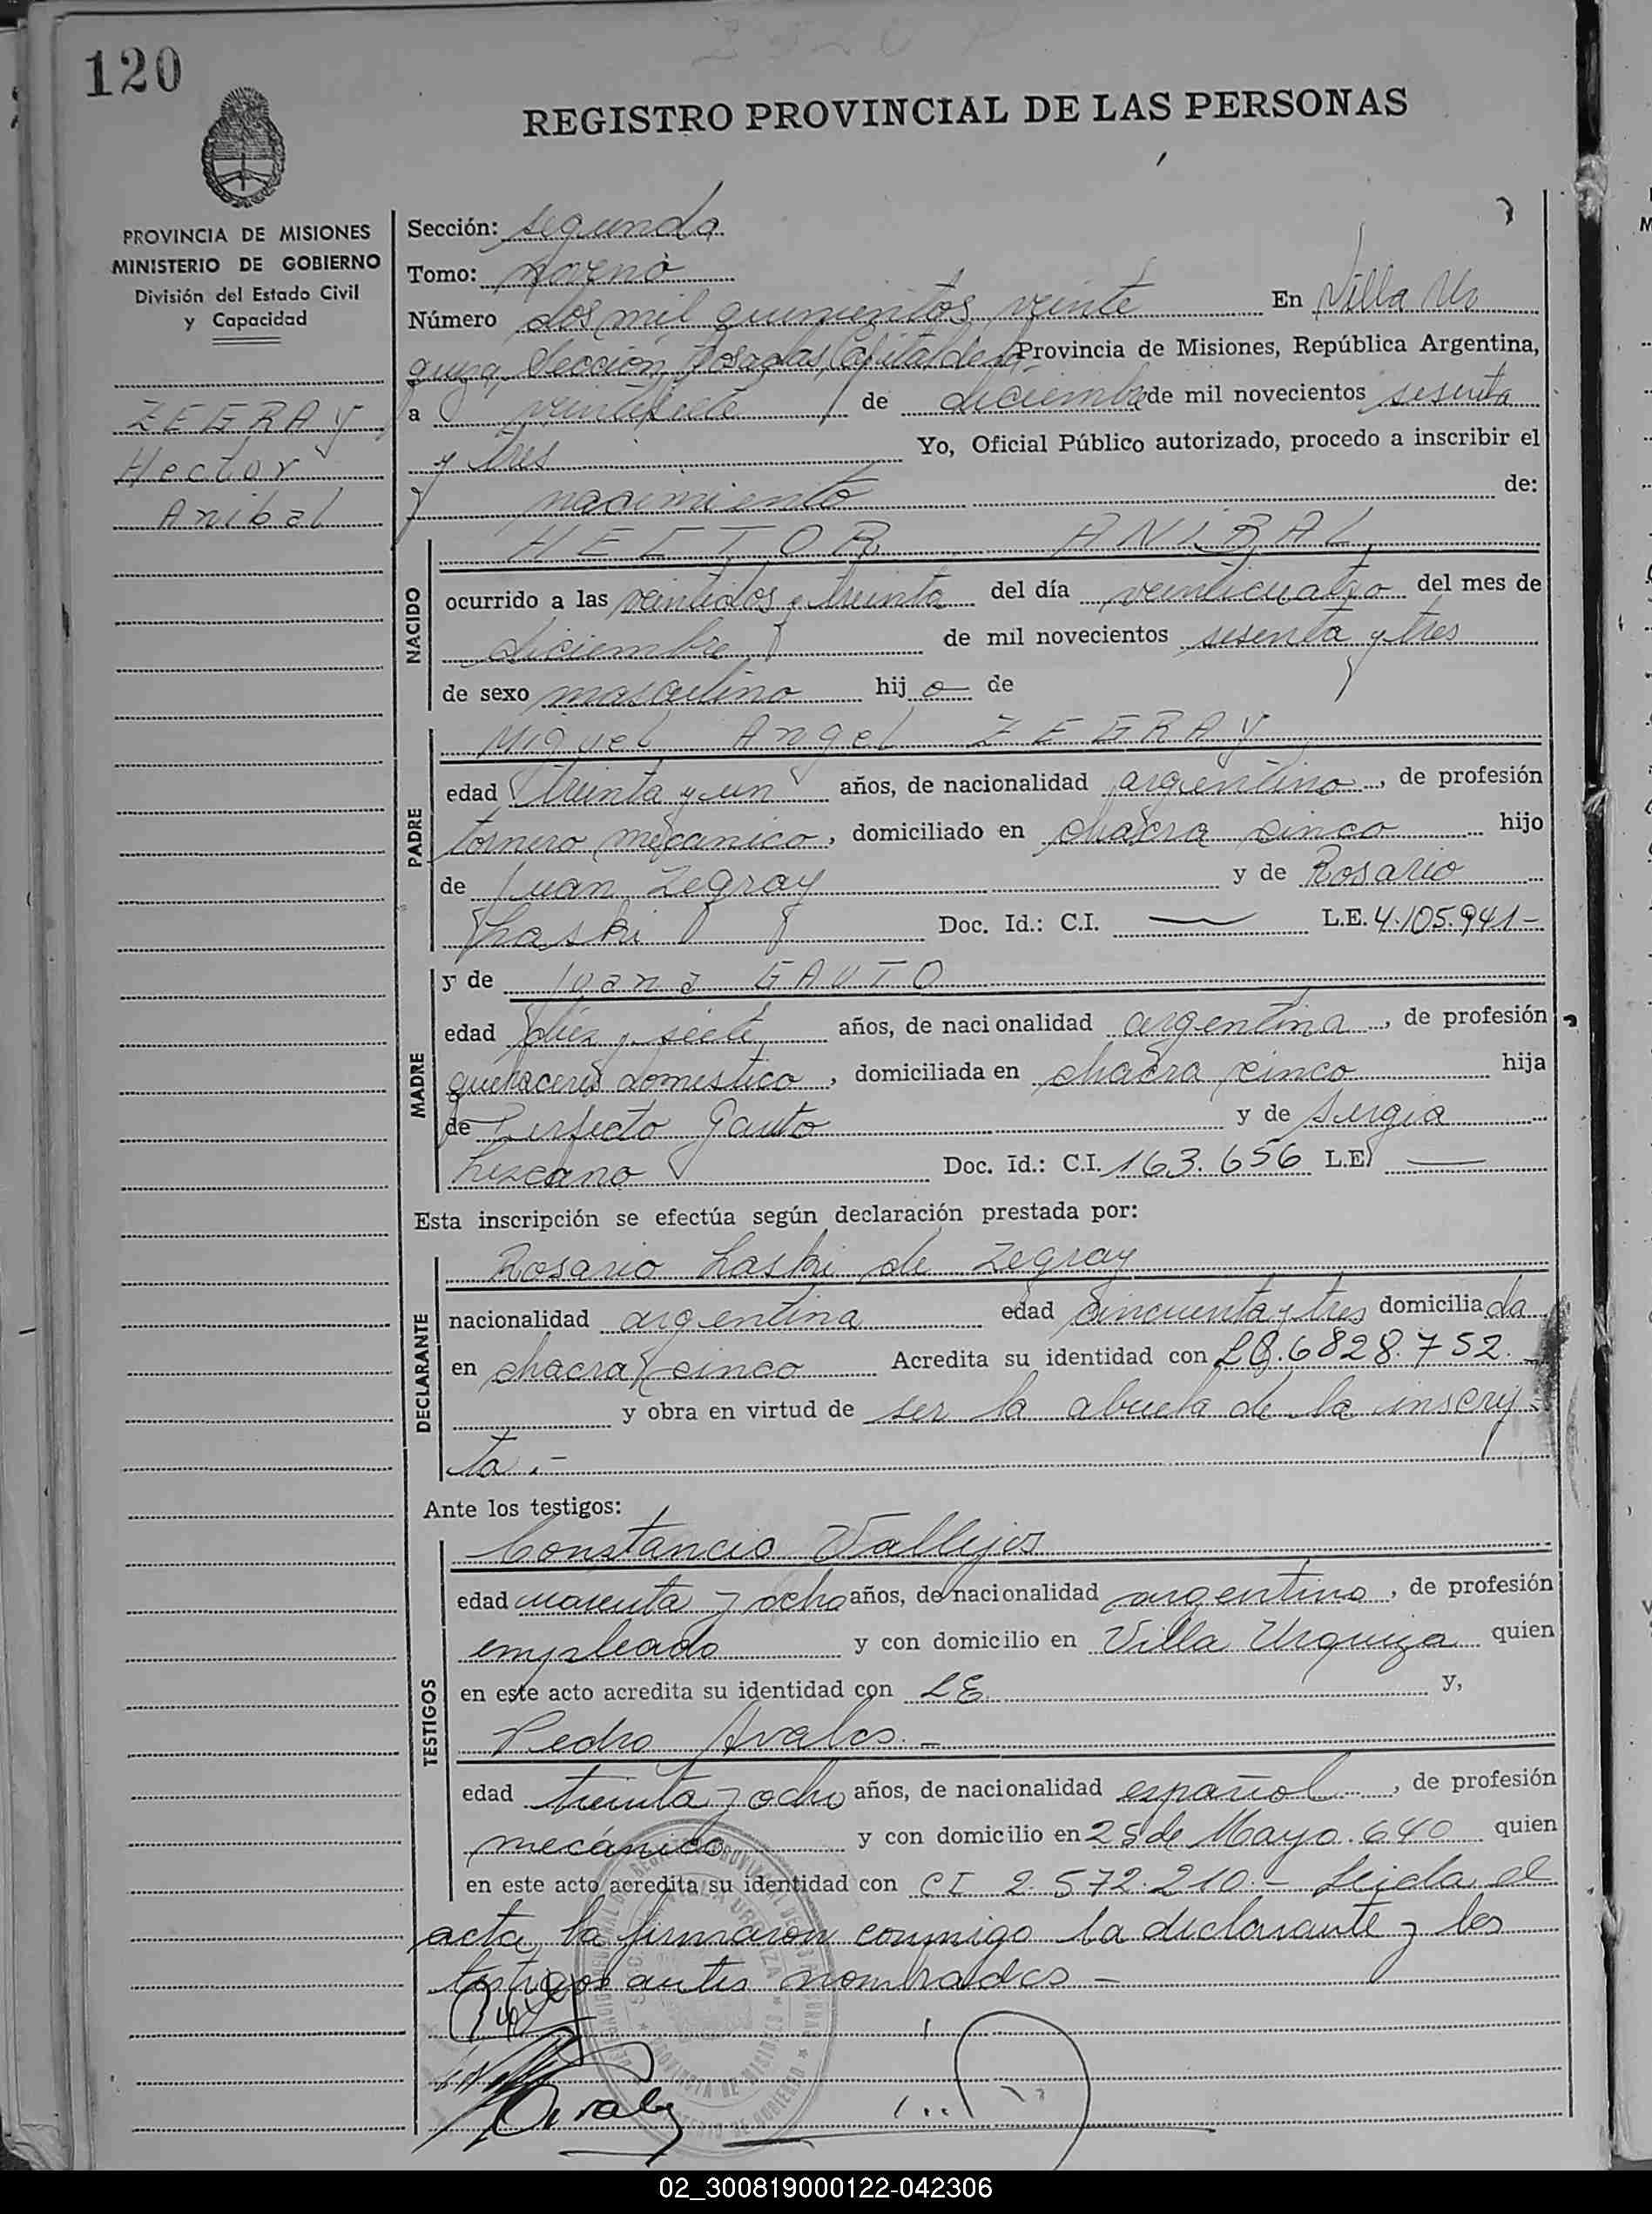 120
REGISTRO PROVINCIAL DE LAS PERSONAS
PROVINCIA DE MISIONES
MINISTERIO DE GOBIERNO
División del Estado Civil
y Capacidad
ZEGRAY
Hector
Anibal
Sección: segunda
Tomo: noveno
Número dos mil quinientos veinte En Villa Ur
quiza Sección Posadas, Capital de la Provincia de Misiones, República Argentina,
a veintisiete de diciembre de mil novecientos sesenta
y tres Yo, Oficial Público autorizado, procedo a inscribir el
nacimiento de:
NACIDO
HECTOR ANIBAL
ocurrido a las veintidos y treinta del día veinticuatro del mes de
diciembre de mil novecientos sesenta y tres
de sexo masculino hijo de
PADRE
Miguel Angel ZEGRAY
edad treinta y un años, de nacionalidad argentino, de profesión
tornero mecanico, domiciliado en chacra cinco hijo
de Juan Zegray y de Rosario
Laski Doc. Id.: C.I. — L.E. 4.105.941-
MADRE
y de Juana GAUTO
edad diez y siete años, de nacionalidad argentina, de profesión
quehaceres domestico, domiciliada en chacra cinco hija
de Perfecto Gauto y de Sergia
Lezcano Doc. Id.: C.I. 163.656 L.E. —
Esta inscripción se efectúa según declaración prestada por:
DECLARANTE
Rosario Laski de Zegray
nacionalidad argentina edad cincuenta y tres domiciliada
en chacra cinco Acredita su identidad con LC.6828.752.
y obra en virtud de ser la abuela de la inscrip-
ta.-
Ante los testigos:
TESTIGOS
Constancio Vallejos
edad cuarenta y ocho años, de nacionalidad argentino, de profesión
empleado y con domicilio en Villa Urquiza quien
en este acto acredita su identidad con LE y,
Pedro Avalos.-
edad treinta y ocho años, de nacionalidad español, de profesión
mecánico y con domicilio en 25 de Mayo 640 quien
en este acto acredita su identidad con CI 2.572.210.- Leida el
acta, la firmaron conmigo la declarante y los
testigos antes nombrados -
02_300819000122-042306